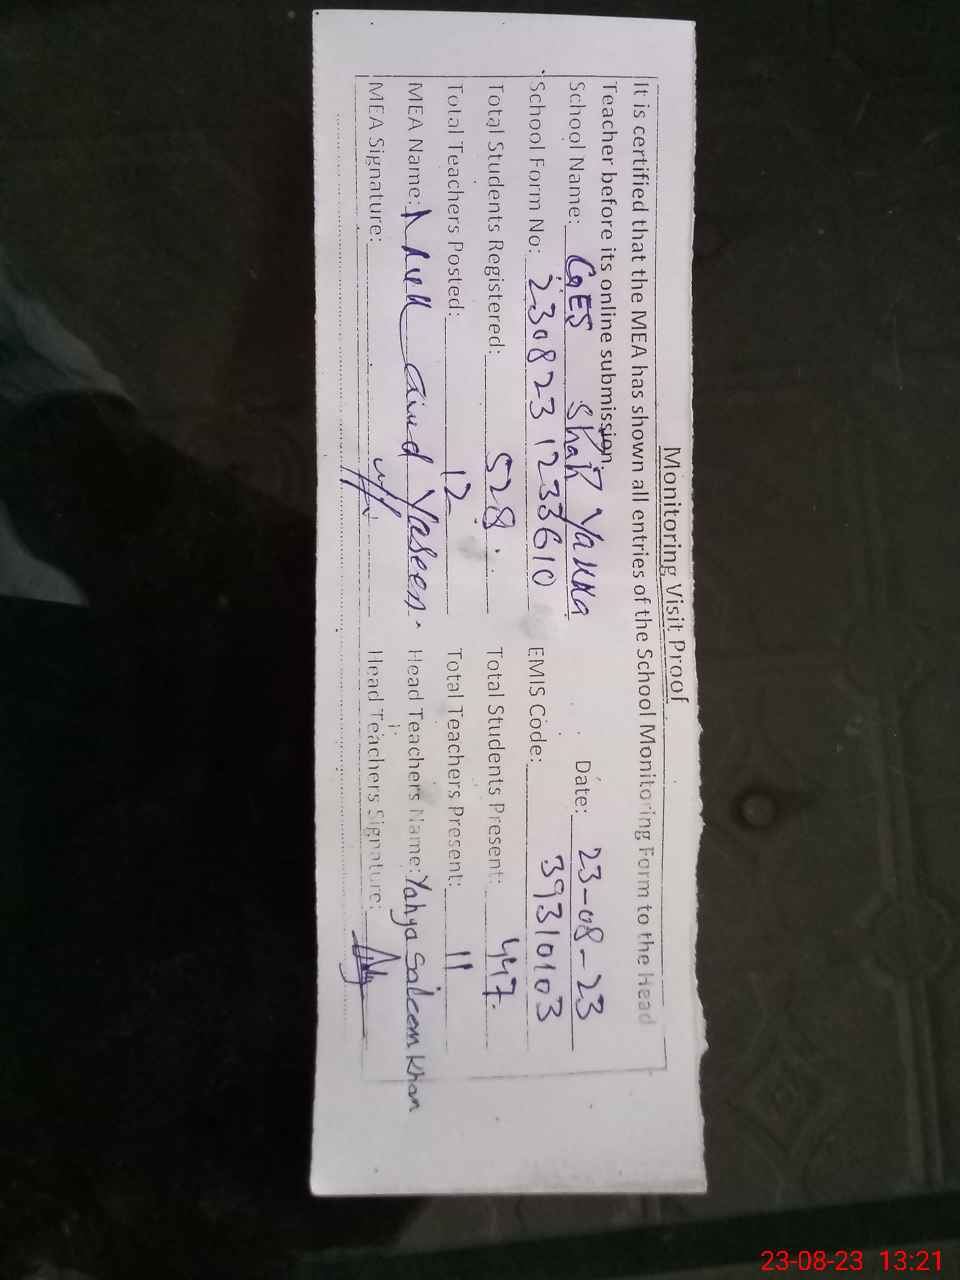 Monitoring Visit Proof
It is certified that the MEA has shown all entries of the School Monitoring Form to the Head
Teacher before its online submission.
School Name: GES Shah Yakka Date: 23-08-23
School Form No: 230823 1233610 EMIS Code: 39310103
Total Students Registered: 528. Total Students Present: 447.
Total Teachers Posted: 12 Total Teachers Present: 11
MEA Name: Yaseen. Head Teachers Name: Yahya Saleem Khan
MEA Signature: Head Teachers Signature:
23-08-23 13:21